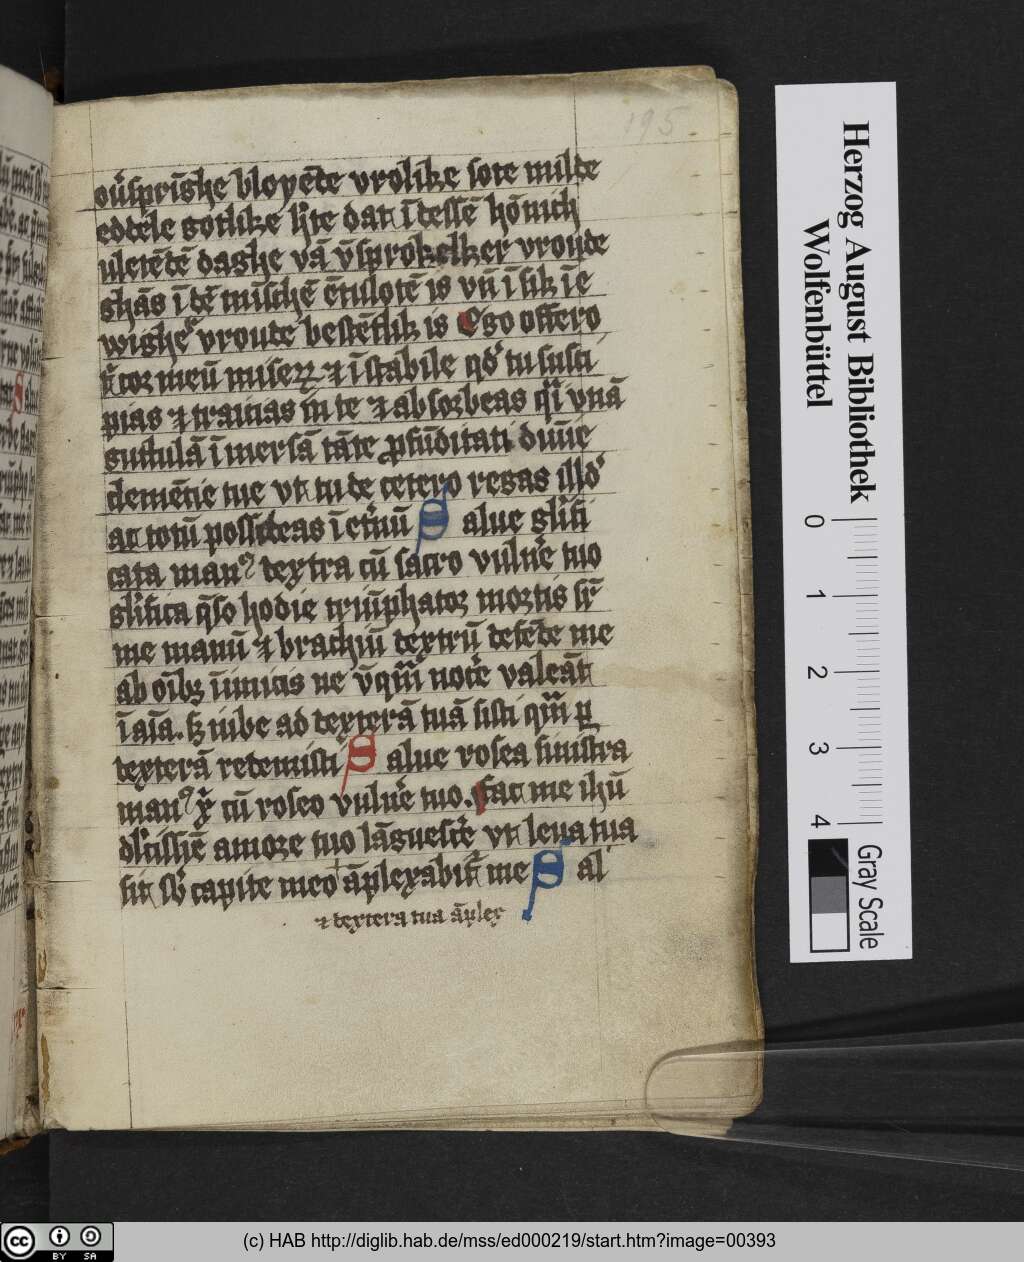 195
ou̅sprīshe bloyēde vrolike sote milde
eddele gotlike h̓te dat ī dessē hōnich
uletēdē daghe vā v̄sprokelker vroude
ghās ī dē mischē ētulotē is vn̄ ī sik īe
wighe vroude bestētlik is Ego offero
t̄ cor meū miser⁊ ⁊ īstabile qd̓ tu susci
pias ⁊ traicias in te ⁊ absorbeas qi̓ vnā
guttulā īmersā tāte ꝓfūditati diuīe
clemētie tue vt tu de cetero regas illd̓
ac totū possideas ī et̓nū Salue gl̓ifi
cata manꝰ dextra cū sacro vuln̓e tuo
gl̓ifica q̄so hodie triūphator mortis sr̄
me manū ⁊ brachiū dextrū defēde me
ab oībꝫ īimicis ne v̄q̄ȝ noc̓e valeāt
ī aīa. sꝫ iube ad dexterā tuā sisti qm̄ ꝑ
dexterā redemisti Salue rosea sinistra
manꝰ xp̄i cū roseo vuln̓e tuo. Fac me ihū
dl̓cissīe amore tuo lāguesc̓e vt leua tua
sit sb̓ capite meo āplexabit̓ me Sal
⁊ dextera tua āplex
Herzog August Bibliothek
Wolfenbüttel
0
1
2
3
4
Gray Scale
cc BY SA
(c) HAB http://diglib.hab.de/mss/ed000219/start.htm?image=00393